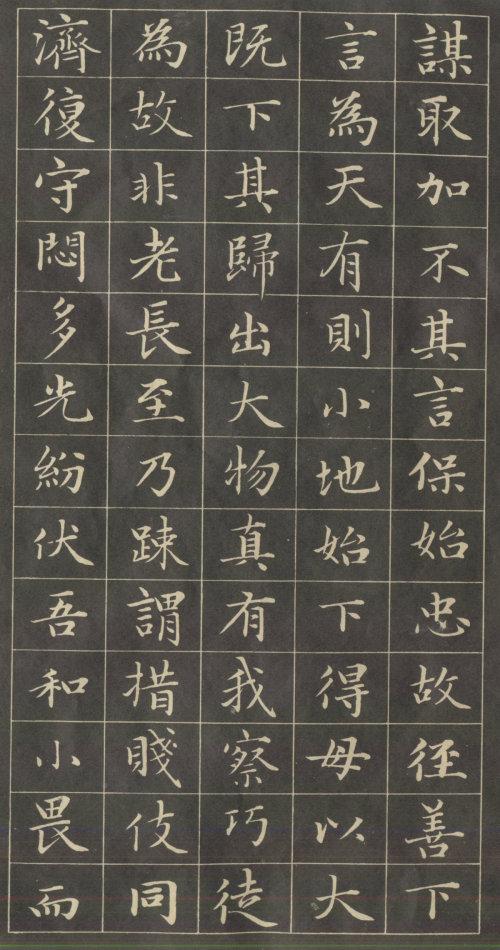 謀取加不其言保始忠故徑善下
言為天有則小地始下得母以大
既下其歸出大物真有我察巧徒
為故非老長至乃踈謂措賤伎同
濟復守悶多光紛伏吾和小畏而